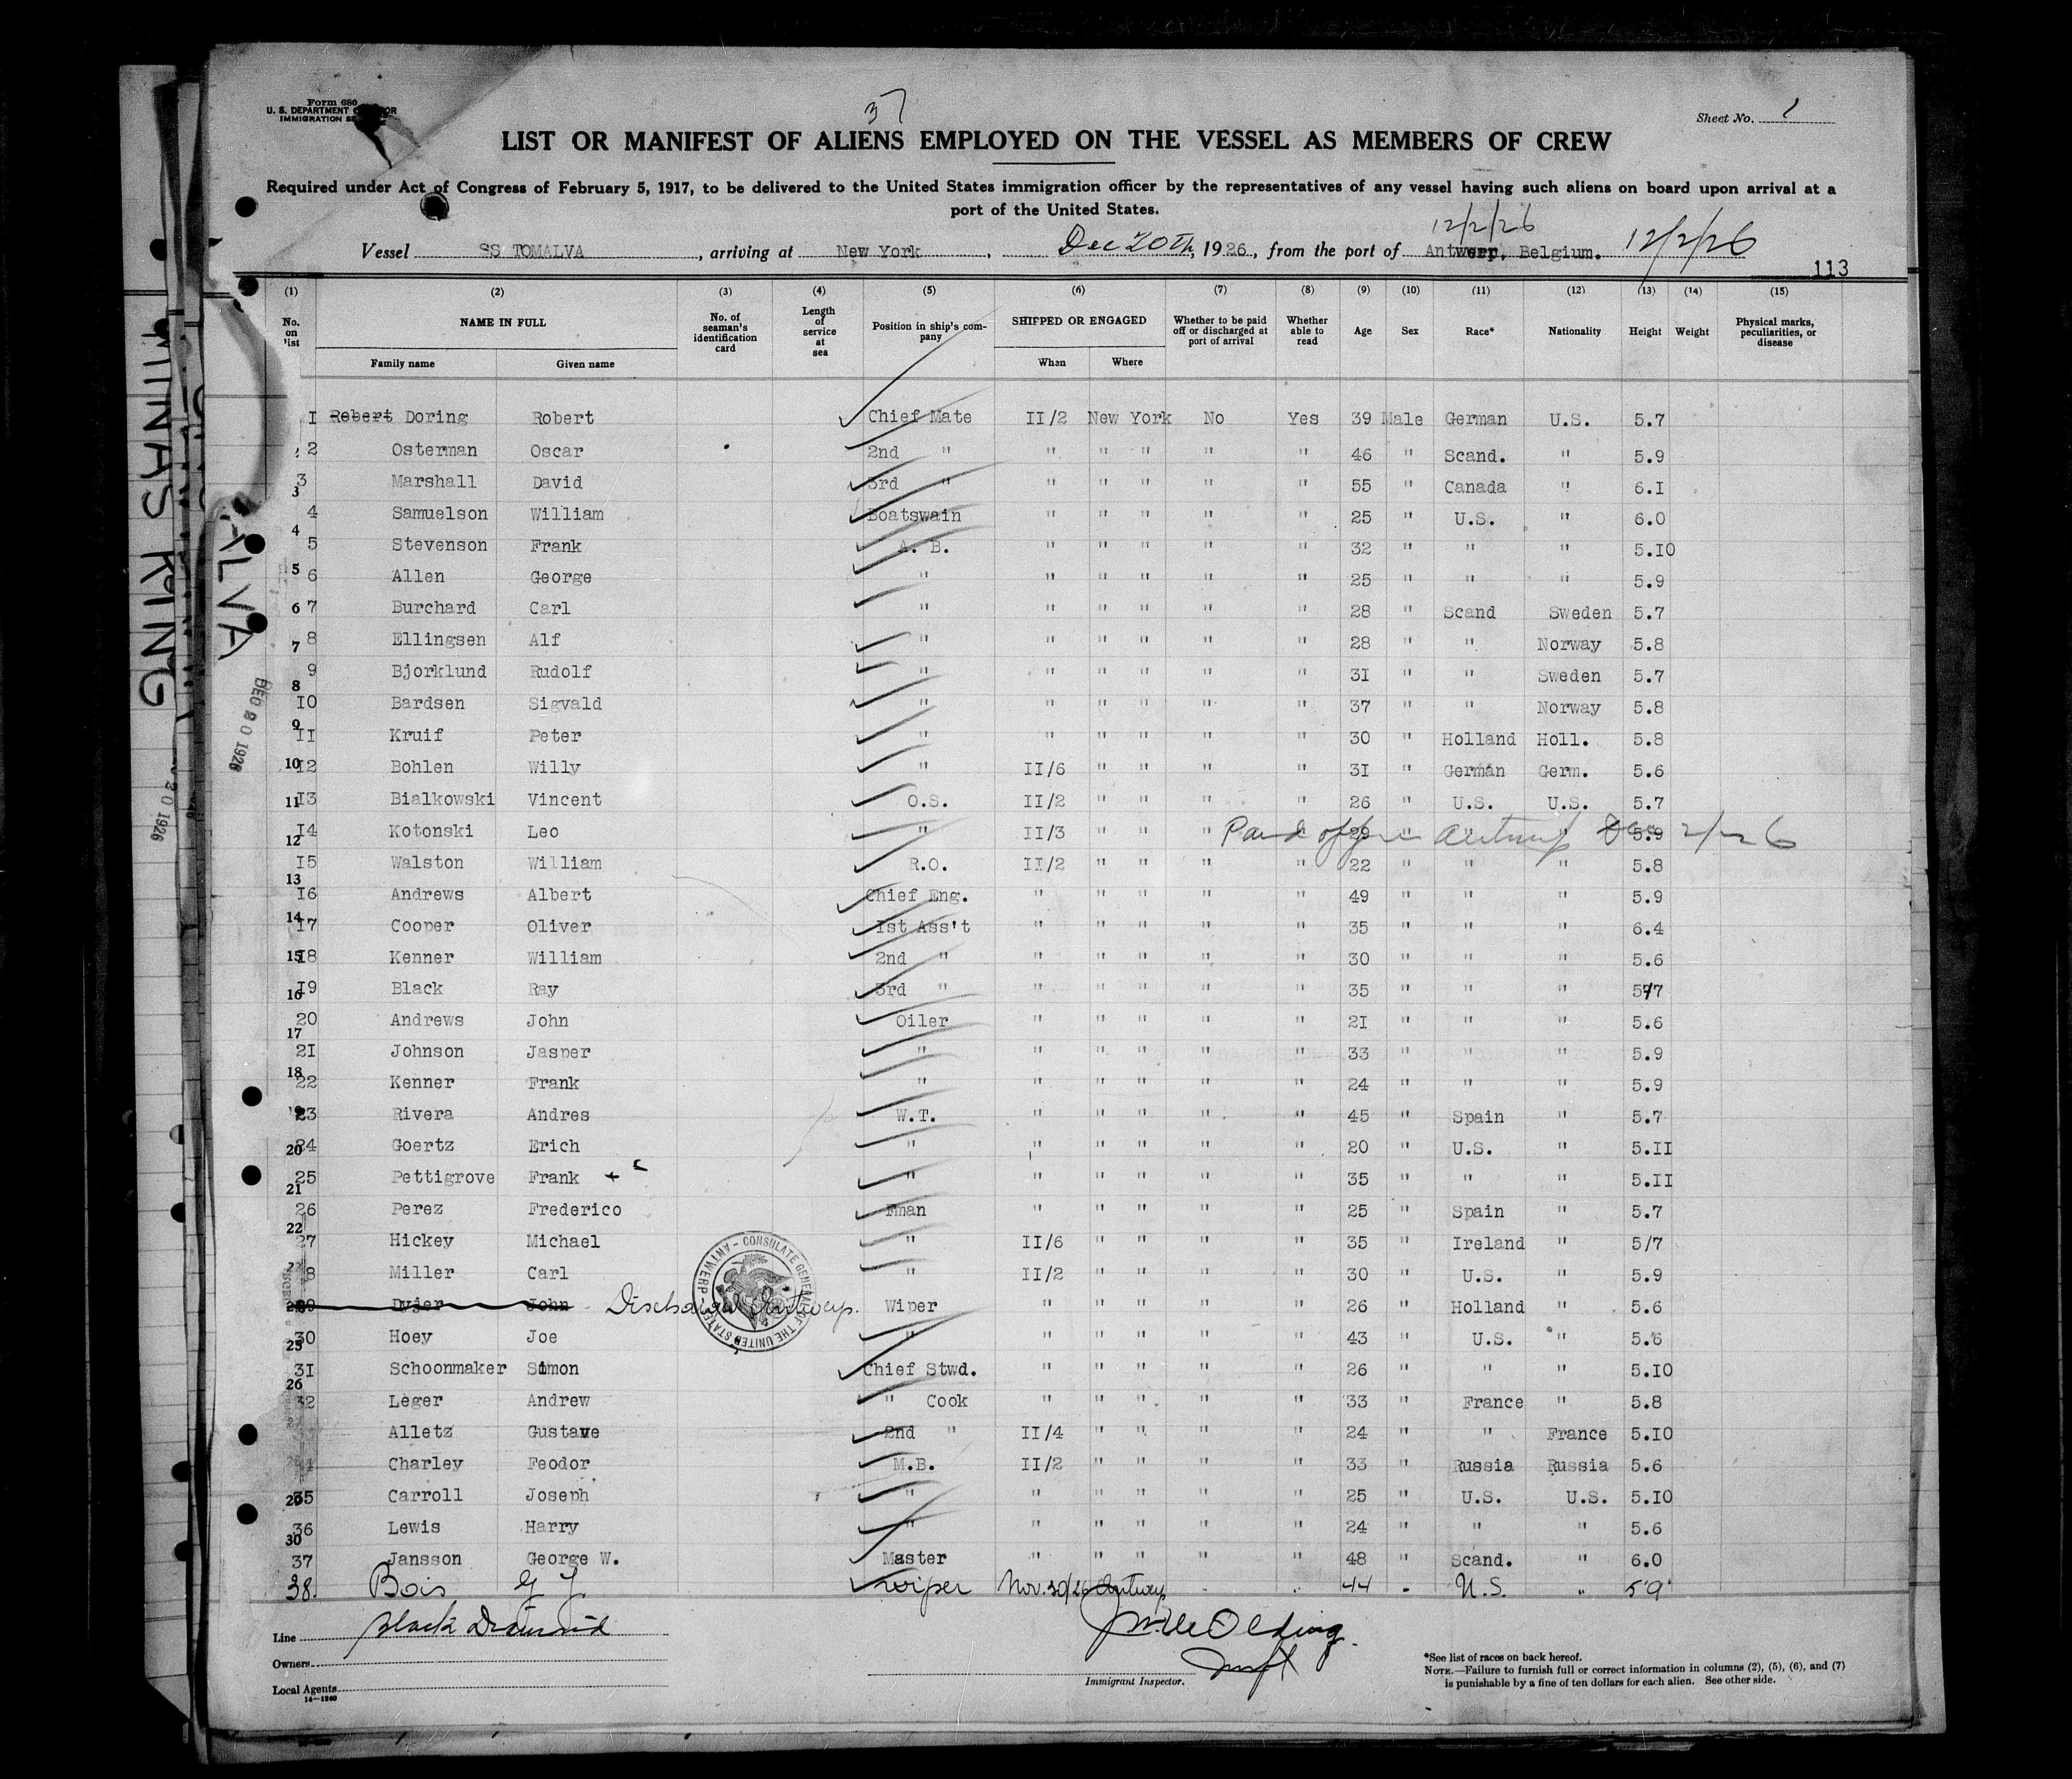 Form 680
U. S. DEPARTMENT OF LABOR
IMMIGRATION SERVICE
37
Sheet No. 1
LIST OR MANIFEST OF ALIENS EMPLOYED ON THE VESSEL AS MEMBERS OF CREW
Required under Act of Congress of February 5, 1917, to be delivered to the United States immigration officer by the representatives of any vessel having such aliens on board upon arrival at a
port of the United States.
12/2/26
Vessel SS TOMALVA , arriving at New York , Dec 20th, 1926, from the port of Antwerp, Belgium. 12/2/26
113
(1) (2) (3) (4) (5) (6) (7) (8) (9) (10) (11) (12) (13) (14) (15)
No. on list NAME IN FULL Family name Given name No. of seaman's identification card Length of service at sea Position in ship's company SHIPPED OR ENGAGED When Where Whether to be paid off or discharged at port of arrival Whether able to read Age Sex Race* Nationality Height Weight Physical marks, peculiarities, or disease
1 Robert Doring Robert Chief Mate II/2 New York No Yes 39 Male German U.S. 5.7
2 Osterman Oscar 2nd " " " " " " 46 " Scand. " 5.9
3 Marshall David 3rd " " " " " " 55 " Canada " 6.I
4 Samuelson William Boatswain " " " " " 25 " U.S. " 6.0
5 Stevenson Frank A. B. " " " " " 32 " " " 5.I0
6 Allen George " " " " " " 25 " " " 5.9
7 Burchard Carl " " " " " " 28 " Scand Sweden 5.7
8 Ellingsen Alf " " " " " " 28 " " Norway 5.8
9 Bjorklund Rudolf " " " " " " 3I " " Sweden 5.7
I0 Bardsen Sigvald " " " " " " 37 " " Norway 5.8
II Kruif Peter " " " " " " 30 " Holland Holl. 5.8
I2 Bohlen Willy " II/6 " " " " 3I " German Germ. 5.6
I3 Bialkowski Vincent O.S. II/2 " " " " 26 " U.S. U.S. 5.7
I4 Kotonski Leo " II/3 " " " 29 " " 5.9 Paid off in Antwerp Dec 2/26
I5 Walston William R.O. II/2 " " " " 22 " " " 5.8
I6 Andrews Albert Chief Eng. " " " " " 49 " " " 5.9
I7 Cooper Oliver 1st Ass't " " " " " 35 " " " 6.4
I8 Kenner William 2nd " " " " " " 30 " " " 5.6
I9 Black Ray 3rd " " " " " " 35 " " " 5/7
20 Andrews John Oiler " " " " " 2I " " " 5.6
2I Johnson Jasper " " " " " " 33 " " " 5.9
22 Kenner Frank " " " " " " 24 " " " 5.9
23 Rivera Andres W.T. " " " " " 45 " Spain " 5.7
24 Goertz Erich " " " " " " 20 " U.S. " 5.II
25 Pettigrove Frank " " " " " " 35 " " " 5.II
26 Perez Frederico Fman " " " " " 25 " Spain " 5.7
27 Hickey Michael " II/6 " " " " 35 " Ireland " 5/7
28 Miller Carl " II/2 " " " " 30 " U.S. " 5.9
29 Dyjer John Discharged Antwerp. Wiper " " " " " 26 " Holland " 5.6
30 Hoey Joe " " " " " " 43 " U.S. " 5.6
3I Schoonmaker Simon Chief Stwd. " " " " " 26 " " " 5.I0
32 Leger Andrew " Cook " " " " " 33 " France " 5.8
Alletz Gustave 2nd " II/4 " " " " 24 " " France 5.I0
Charley Feodor M.B. II/2 " " " " 33 " Russia Russia 5.6
35 Carroll Joseph " " " " " " 25 " U.S. U.S. 5.I0
36 Lewis Harry " " " " " " 24 " " " 5.6
37 Jansson George W. Master " " " " " 48 " Scand. " 6.0
38. Bois G J wiper Nov. 30/26 Antwerp " " 44 " U.S. " 5'9"
CONSULATE GENERAL OF THE UNITED STATES ANTWERP
Line Black Diamond
Owners
Local Agents
14-1240
Immigrant Inspector.
*See list of races on back hereof.
NOTE.—Failure to furnish full or correct information in columns (2), (5), (6), and (7)
is punishable by a fine of ten dollars for each alien. See other side.
MINAS KING
ALVA
DEC 20 1926